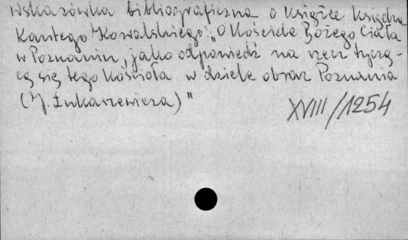 Wskazówka bibliograficzna o książce księdza
Kantego Kowalskiego: "O Kościele Bożego Ciała
w Poznaniu, jako odpowiedź na rzecz tyczą-
cą się tego Kościoła w dziele obraz Poznania
(J. Łukaszewicza)"
XVIII/1254